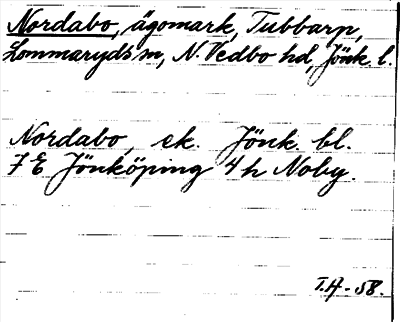 Nordabo, ägomark, Tubbarp,
Lommaryds sn, N. Vedbo hd, Jönk. l.
Nordabo, ek. Jönk. bl.
7 E Jönköping 4 h Noby.
T.A - 58.